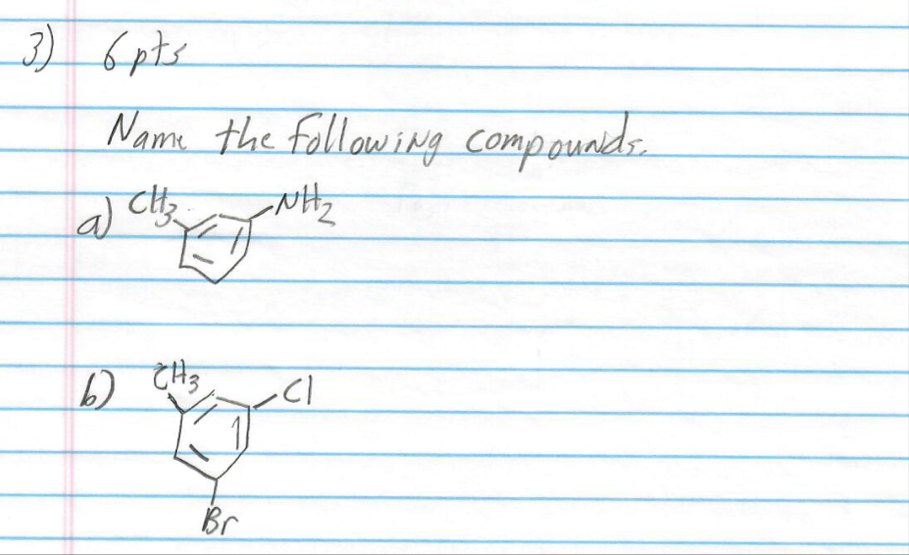 3) 6 pts
Name the following compounds.
a) CH3 NH2
b) CH3 Cl
Br